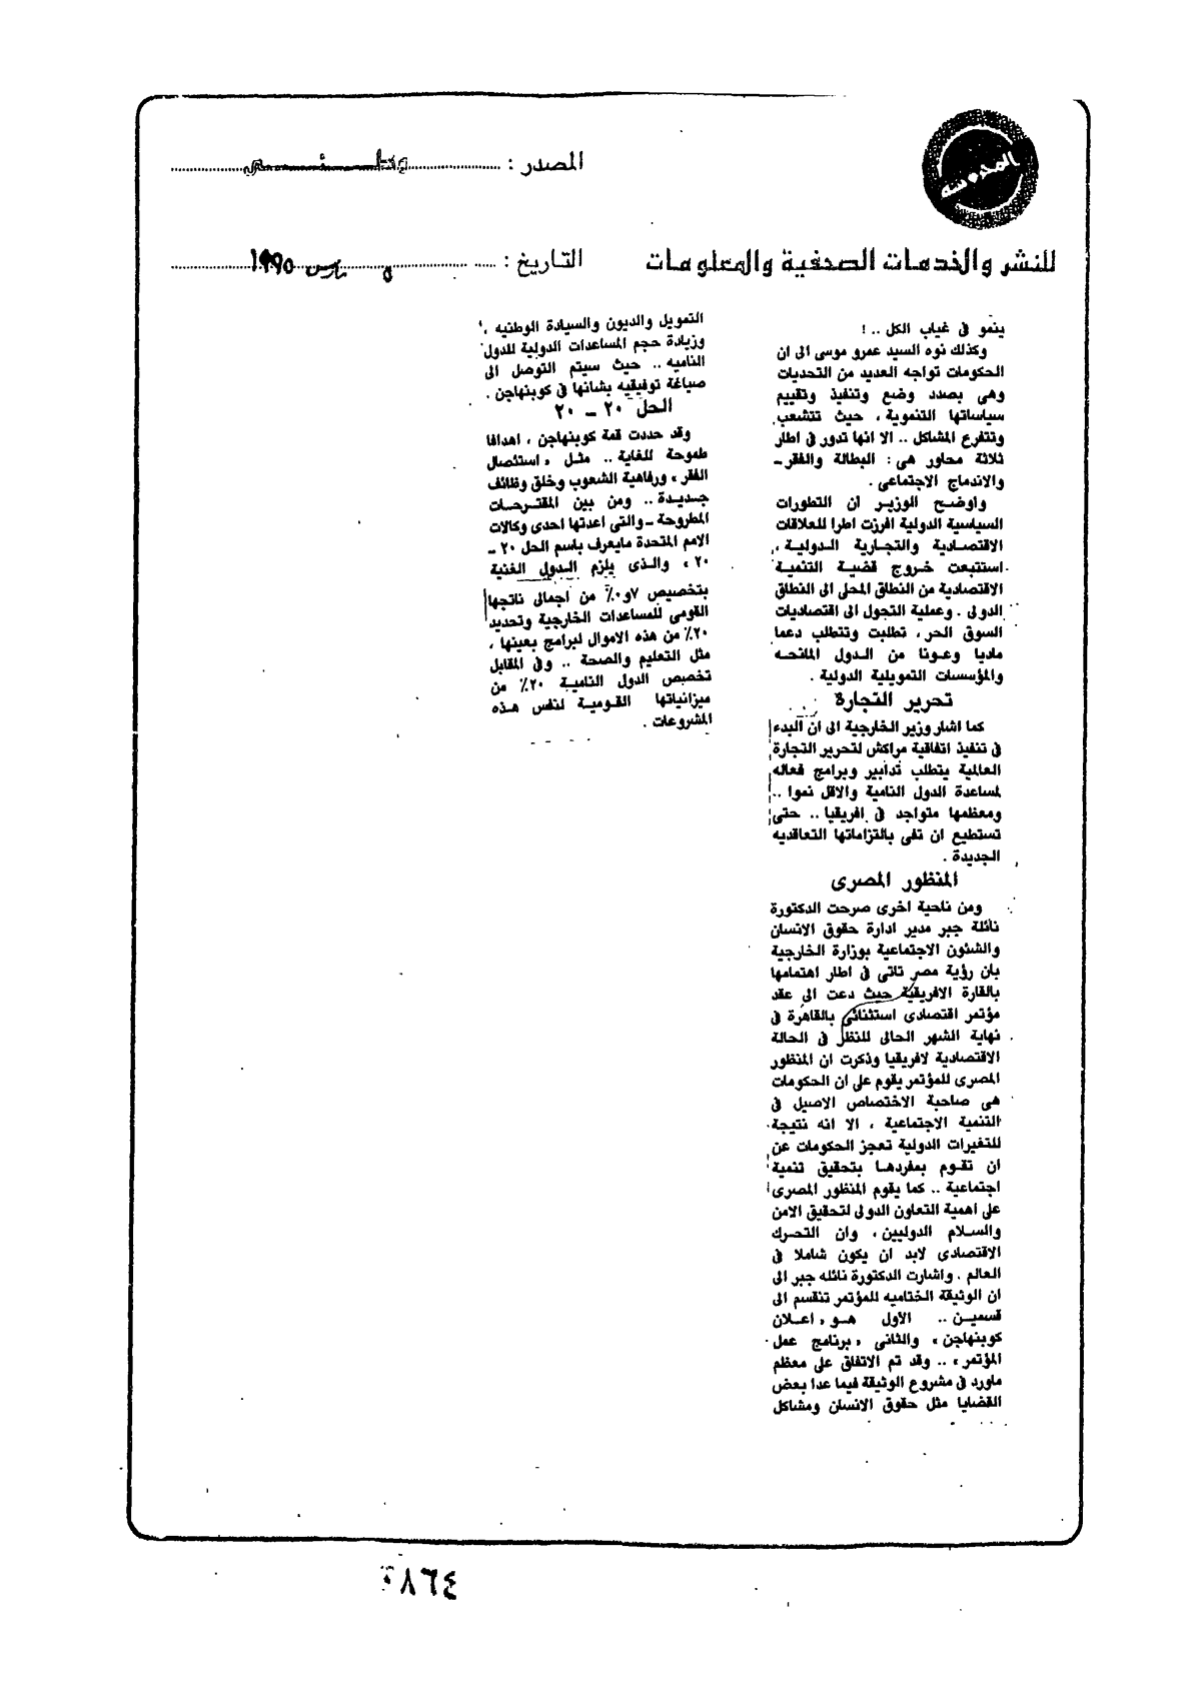 المحروسة
المصدر : وطنى
للنشر والخدمات الصحفية والمعلومات
التاريخ : ٥ مارس ١٩٩٥
ينمو فى غياب الكل .. !
وكذلك نوه السيد عمرو موسى الى ان
الحكومات تواجه العديد من التحديات
وهى بصدد وضع وتنفيذ وتقييم
سياساتها التنموية ، حيث تتشعب
وتتفرع المشاكل .. الا انها تدور فى اطار
ثلاثة محاور هى : البطالة والفقر –
والاندماج الاجتماعى .
واوضح الوزير ان التطورات
السياسية الدولية افرزت اطرا للعلاقات
الاقتصادية والتجارية الدولية ،
استتبعت خروج قضية التنمية
الاقتصادية من النطاق المحلى الى النطاق
الدولى . وعملية التحول الى اقتصاديات
السوق الحر ، تطلبت وتتطلب دعما
ماديا وعونا من الدول المانحه
والمؤسسات التمويلية الدولية .
تحرير التجارة
كما اشار وزير الخارجية الى ان البدء
فى تنفيذ اتفاقية مراكش لتحرير التجارة
العالمية يتطلب تدابير وبرامج فعاله
لمساعدة الدول النامية والاقل نموا ..
ومعظمها متواجد فى افريقيا .. حتى
تستطيع ان تفى بالتزاماتها التعاقديه
الجديدة .
المنظور المصرى
ومن ناحية اخرى صرحت الدكتورة
نائلة جبر مدير ادارة حقوق الانسان
والشئون الاجتماعية بوزارة الخارجية
بان رؤية مصر تاتى فى اطار اهتمامها
بالقارة الافريقية حيث دعت الى عقد
مؤتمر اقتصادى استثنائى بالقاهرة فى
نهاية الشهر الحالى للنظر فى الحالة
الاقتصادية لافريقيا وذكرت ان المنظور
المصرى للمؤتمر يقوم على ان الحكومات
هى صاحبة الاختصاص الاصيل فى
التنمية الاجتماعية ، الا انه نتيجة
للتغيرات الدولية تعجز الحكومات عن
ان تقوم بمفردها بتحقيق تنمية
اجتماعية .. كما يقوم المنظور المصرى
على اهمية التعاون الدولى لتحقيق الامن
والسلام الدوليين ، وان التحرك
الاقتصادى لابد ان يكون شاملا فى
العالم . واشارت الدكتورة نائله جبر الى
ان الوثيقة الختاميه للمؤتمر تنقسم الى
قسمين .. الأول هو « اعلان
كوبنهاجن » والثانى « برنامج عمل
المؤتمر » .. وقد تم الاتفاق على معظم
ماورد فى مشروع الوثيقة فيما عدا بعض
القضايا مثل حقوق الانسان ومشاكل
التمويل والديون والسيادة الوطنيه ،
وزيادة حجم المساعدات الدولية للدول
الناميه .. حيث سيتم التوصل الى
صياغة توفيقيه بشانها فى كوبنهاجن .
الحل ٢٠ – ٢٠
وقد حددت قمة كوبنهاجن ، اهدافا
طموحة للغاية .. مثل « استئصال
الفقر » ورفاهية الشعوب وخلق وظائف
جديدة .. ومن بين المقترحات
المطروحة – والتى اعدتها احدى وكالات
الامم المتحدة مايعرف باسم الحل ٢٠ –
٢٠ ، والذى يلزم الدول الغنية
بتخصيص ٠٫٧٪ من اجمالى ناتجها
القومى للمساعدات الخارجية وتحديد
٢٠٪ من هذه الاموال لبرامج بعينها ،
مثل التعليم والصحة .. وفى المقابل
تخصص الدول النامية ٢٠٪ من
ميزانياتها القومية لنفس هذه
المشروعات .
٨٦٤